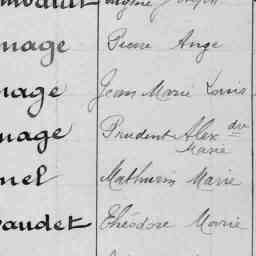 nage Pierre Ange
nage Jean Marie Louis
nage Prudent Alex dre
Marie
nel Mathurin Marie
audet Théodore Marie